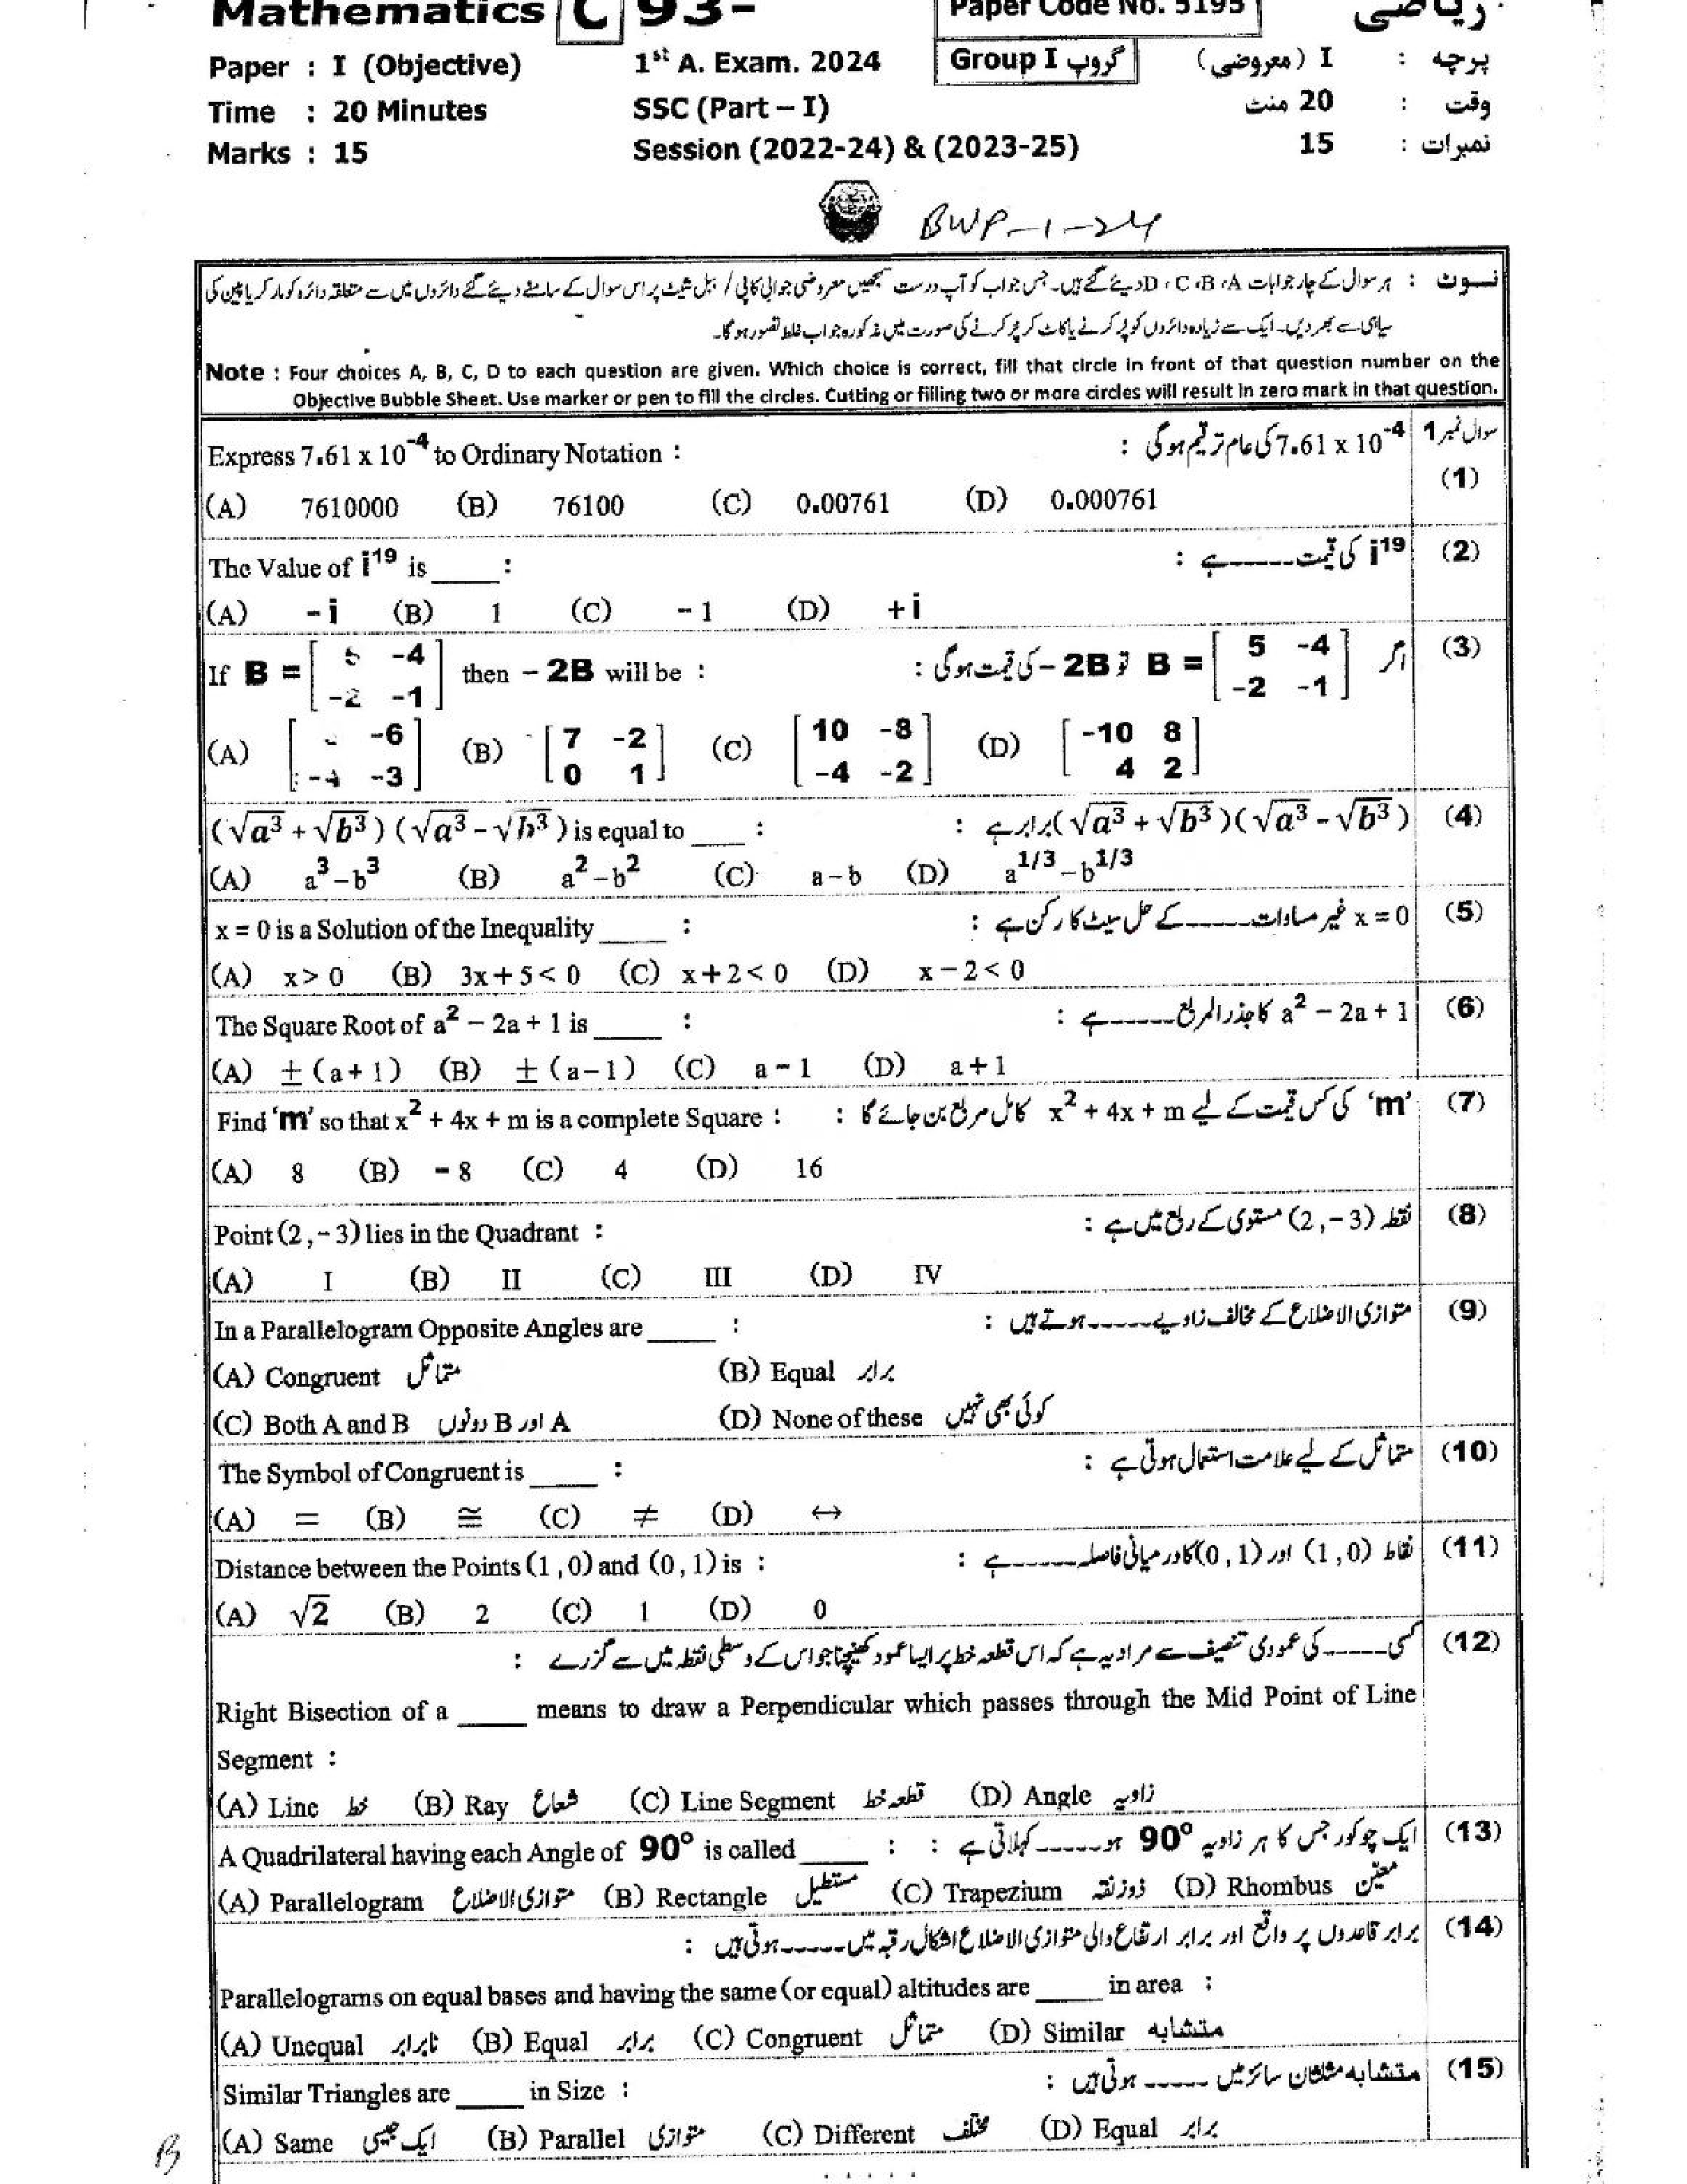 Mathematics C 93- Paper Code No. 5195 ریاضی
Paper : I (Objective) 1st A. Exam. 2024 Group I گروپ I (معروضی) : پرچہ
Time : 20 Minutes SSC (Part – I) 20 منٹ : وقت
Marks : 15 Session (2022-24) & (2023-25) 15 : نمبرات
BWP-1-24
نوٹ : ہر سوال کے چار جوابات D ، C ،B ،A دیئے گئے ہیں۔ جس جواب کو آپ درست سمجھیں معروضی جوابی کاپی / ببل شیٹ پر اس سوال کے سامنے دیئے گئے دائروں میں سے متعلقہ دائرہ کو مارکر یا پین کی
سیاہی سے بھر دیں۔ ایک سے زیادہ دائروں کو پُر کرنے یا کاٹ کر پُر کرنے کی صورت میں مذکورہ جواب غلط تصور ہوگا۔
Note : Four choices A, B, C, D to each question are given. Which choice is correct, fill that circle in front of that question number on the
Objective Bubble Sheet. Use marker or pen to fill the circles. Cutting or filling two or more circles will result in zero mark in that question.
Express 7.61 x 10⁻⁴ to Ordinary Notation : 7.61 x 10⁻⁴ کی عام ترقیم ہوگی : سوال نمبر 1
(1)
(A) 7610000 (B) 76100 (C) 0.00761 (D) 0.000761
The Value of i¹⁹ is ____ : i¹⁹ کی قیمت-----ہے : (2)
(A) - i (B) 1 (C) - 1 (D) + i
If B = [5 -4; -2 -1] then - 2B will be : اگر B = [5 -4; -2 -1] تو -2B کی قیمت ہوگی : (3)
(A) [ -6; -4 -3] (B) [7 -2; 0 1] (C) [10 -8; -4 -2] (D) [-10 8; 4 2]
(√a³ + √b³) (√a³ - √b³) is equal to ____ : (√a³ + √b³)(√a³ - √b³) برابر ہے : (4)
(A) a³ – b³ (B) a² – b² (C) a – b (D) a^1/3 – b^1/3
x = 0 is a Solution of the Inequality ____ : x = 0 غیر مساوات-----کے حل سیٹ کا رکن ہے : (5)
(A) x > 0 (B) 3x + 5 < 0 (C) x + 2 < 0 (D) x – 2 < 0
The Square Root of a² – 2a + 1 is ____ : a² – 2a + 1 کا جذر المربع-----ہے : (6)
(A) ± (a + 1) (B) ± (a – 1) (C) a – 1 (D) a + 1
Find ‘m’ so that x² + 4x + m is a complete Square : ‘m’ کی کس قیمت کے لیے x² + 4x + m کامل مربع بن جائے گا : (7)
(A) 8 (B) - 8 (C) 4 (D) 16
Point (2 , – 3) lies in the Quadrant : نقطہ (2 , – 3) مستوی کے ربع میں ہے : (8)
(A) I (B) II (C) III (D) IV
In a Parallelogram Opposite Angles are ____ : متوازی الاضلاع کے مخالف زاویے-----ہوتے ہیں : (9)
(A) Congruent متماثل (B) Equal برابر
(C) Both A and B A اور B دونوں (D) None of these کوئی بھی نہیں
The Symbol of Congruent is ____ : متماثل کے لیے علامت استعمال ہوتی ہے : (10)
(A) = (B) ≅ (C) ≠ (D) ↔
Distance between the Points (1 , 0) and (0 , 1) is : نقاط (1 , 0) اور (0 , 1) کا درمیانی فاصلہ-----ہے : (11)
(A) √2 (B) 2 (C) 1 (D) 0
کسی-----کی عمودی تنصیف سے مراد یہ ہے کہ اس قطعہ خط پر ایسا عمود کھینچنا جو اس کے وسطی نقطہ میں سے گزرے : (12)
Right Bisection of a ____ means to draw a Perpendicular which passes through the Mid Point of Line
Segment :
(A) Line خط (B) Ray شعاع (C) Line Segment قطعہ خط (D) Angle زاویہ
A Quadrilateral having each Angle of 90° is called ____ : ایک چوکور جس کا ہر زاویہ 90° ہو-----کہلاتی ہے : (13)
(A) Parallelogram متوازی الاضلاع (B) Rectangle مستطیل (C) Trapezium ذوزنقہ (D) Rhombus معین
برابر قاعدوں پر واقع اور برابر ارتفاع والی متوازی الاضلاع اشکال رقبہ میں-----ہوتی ہیں : (14)
Parallelograms on equal bases and having the same (or equal) altitudes are ____ in area :
(A) Unequal نابرابر (B) Equal برابر (C) Congruent متماثل (D) Similar متشابہ
Similar Triangles are ____ in Size : متشابہ مثلثان سائز میں ----- ہوتی ہیں : (15)
(A) Same ایک جیسی (B) Parallel متوازی (C) Different مختلف (D) Equal برابر
B